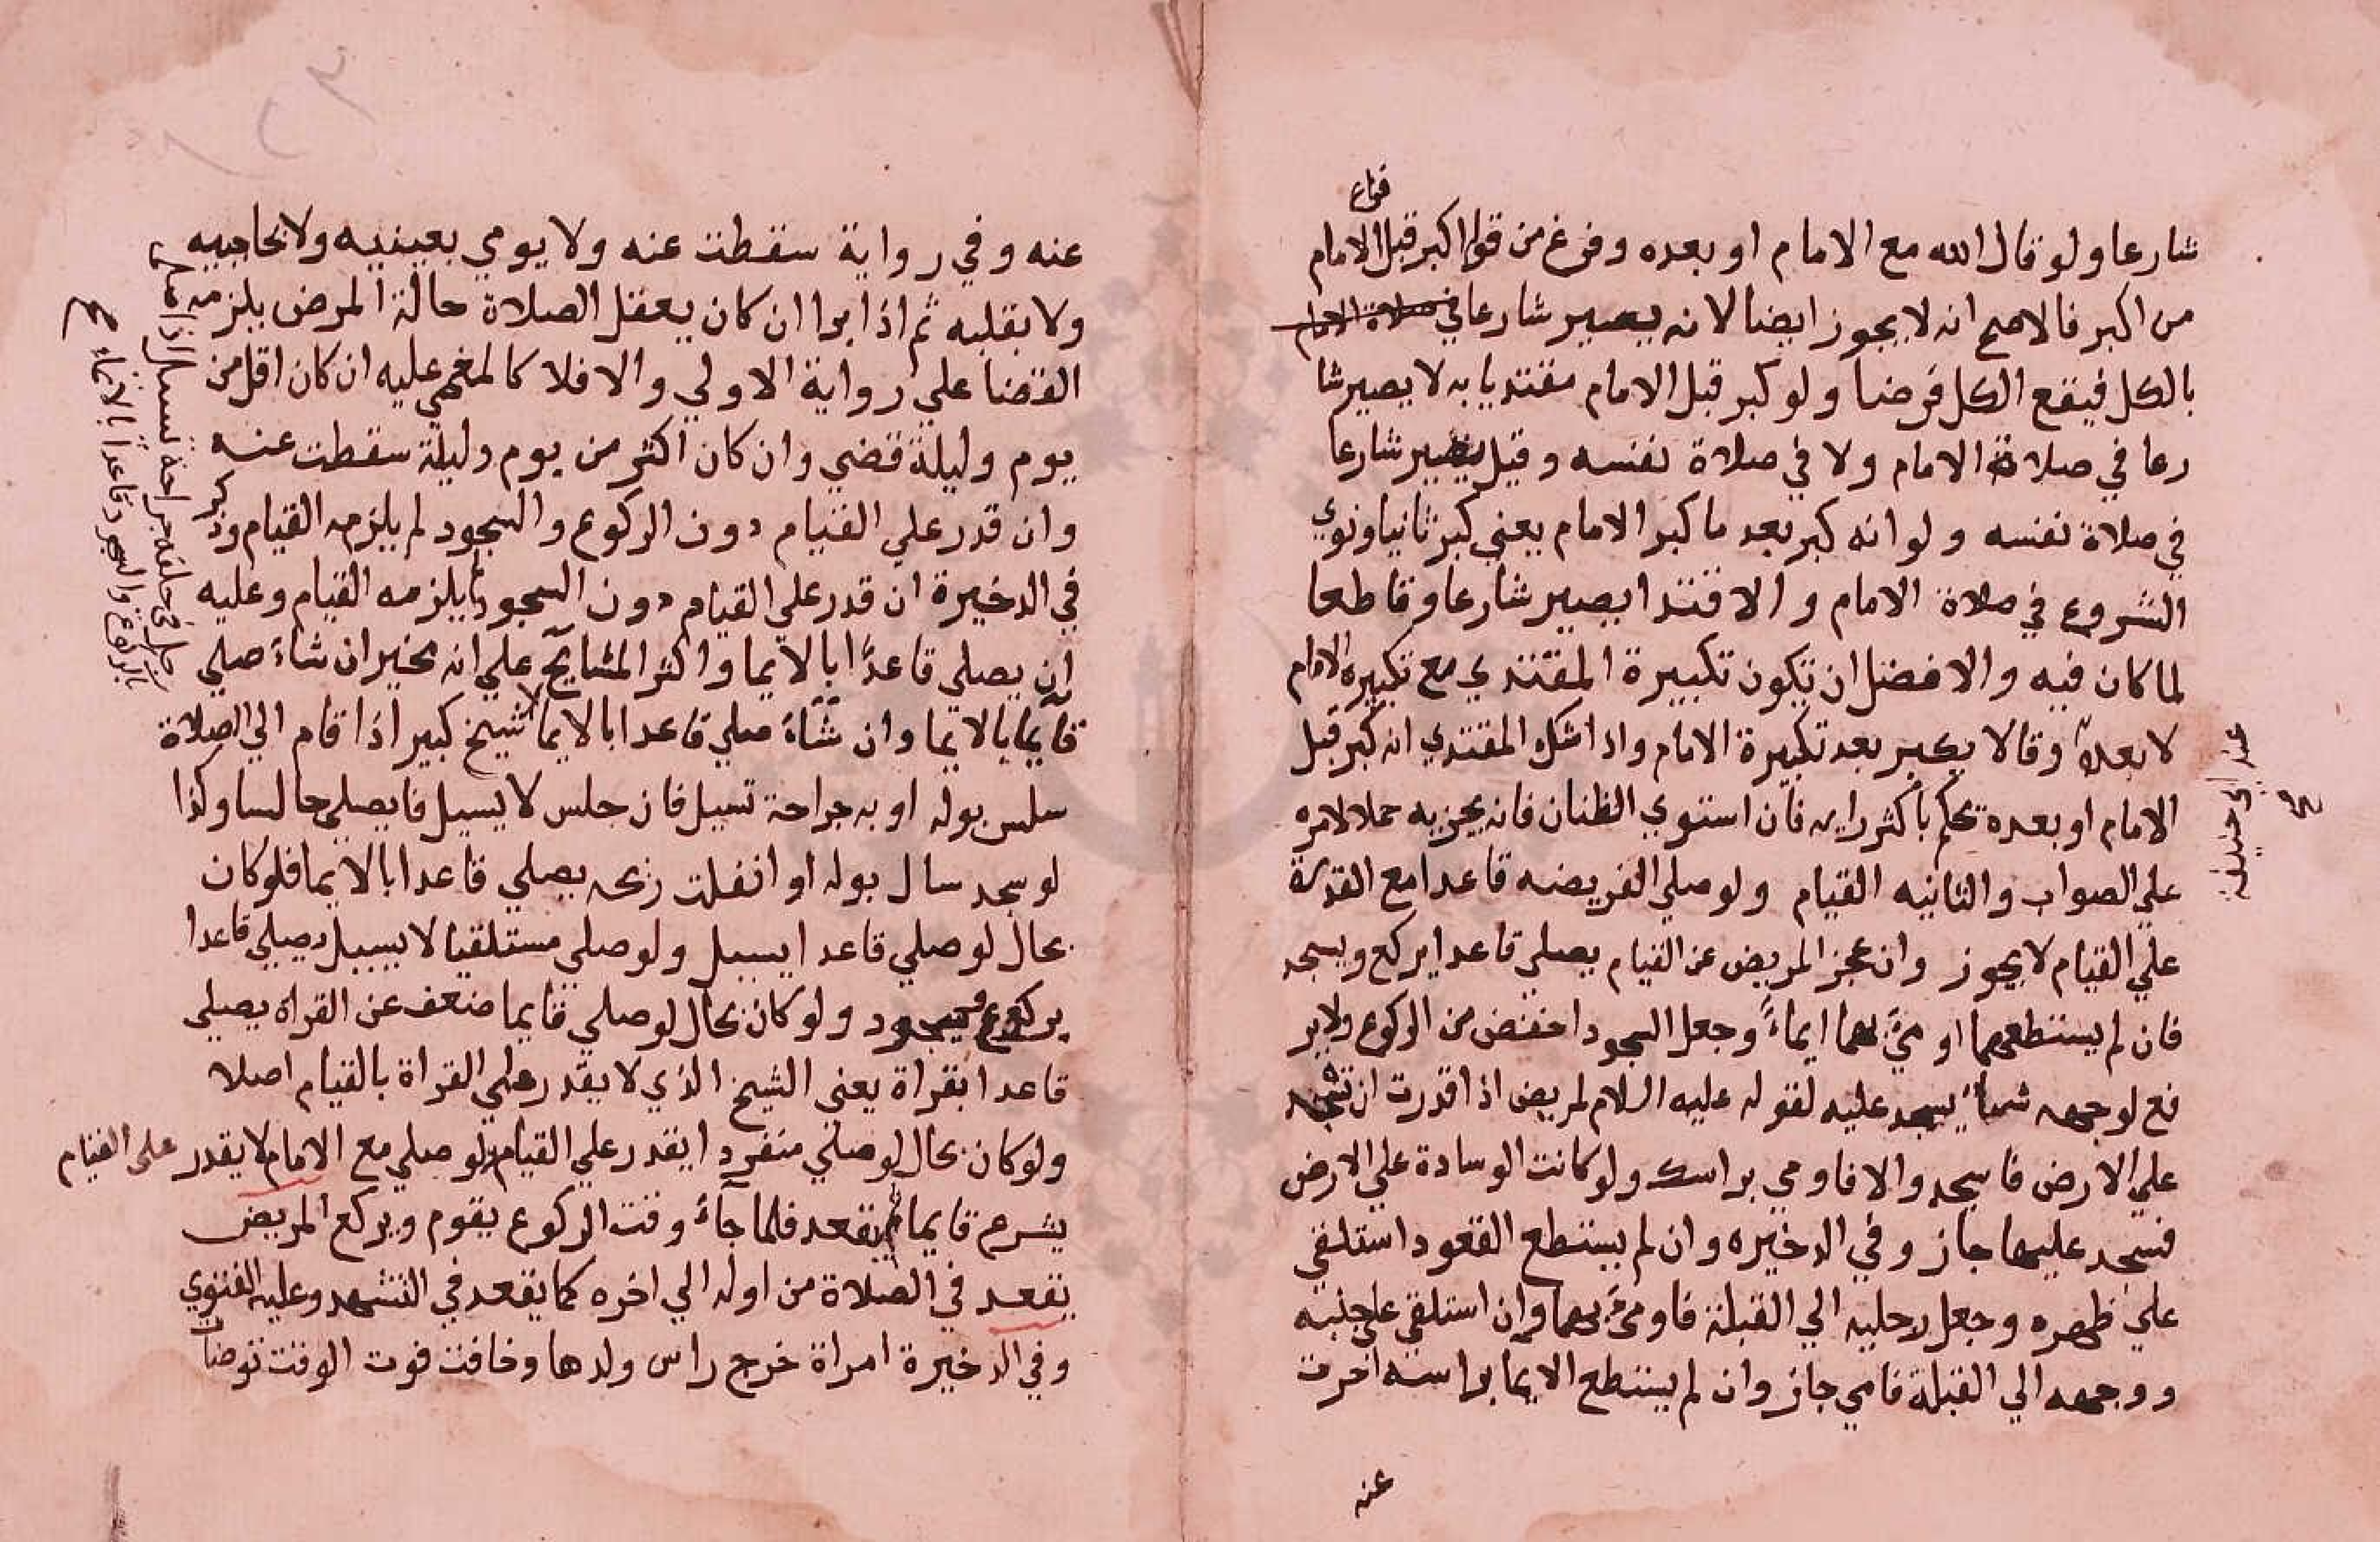 فراغ
شارعا ولو قال الله مع الامام او بعده وفرغ من قوله اكبر قبل الامام
من اكبر فالاصح انه لا يجوز ايضا لانه يصير شارعا في صلاة الامام
بالكل فيقع الكل فرضا ولو كبر قبل الامام مقتديا به لا يصير شا
رعا في صلاة الامام ولا في صلاة نفسه وقيل يصير شارعا
في صلاة نفسه ولو انه كبر بعد ما كبر الامام يعني كبر ثانيا ونوي
الشروع في صلاة الامام والاقتدا يصير شارعا وقاطعا
لما كان فيه والافضل ان تكون تكبيرة المقتدي مع تكبيره الامام
لا بعده وقالا يكبر بعد تكبيرة الامام واذا شك المقتدي انه كبر قبل
الامام او بعده تحكم باكثر رايه فان استوي الظنان فانه يجزيه حملا لامره
علي الصواب والثانيه القيام ولو صلي الفريضه قاعدا مع القدرة
علي القيام لا يجوز وان عجز المريض عن القيام يصلي قاعدا يركع ويسجد
فان لم يستطعهما اومئ بهما ايماءً وجعل السجود اخفض من الركوع ولا ير
فع لوجهه شيأ يسجد عليه لقوله عليه السلام لمريض اذا قدرت ان تسجد
علي الارض فاسجد والا فاومي براسك ولو كانت الوسادة علي الارض
فسجد عليها جاز وفي الذخيره وان لم يستطع القعود استلقي
علي ظهره وجعل رجليه الي القبلة فاومئ بهما وان استلقي علي جنبه
ووجهه الي القبلة فامي جاز وان لم يستطع الايما براسه اخرت
عنه
عند ابي حنيفة
صح
عنه وفي رواية سقطت عنه ولا يومي بعينيه ولا بحاجبيه
ولا بقلبه ثم اذا برا ان كان يعقل الصلاة حالة المرض يلزمه
القضا علي رواية الاولي والا فلا كالمغمي عليه ان كان اقل من
يوم وليلة قضي وان كان اكثر من يوم وليلة سقطت عنه
وان قدر علي القيام دون الركوع والسجود لم يلزمه القيام وذكر
في الذخيرة ان قدر علي القيام دون السجود لا يلزمه القيام وعليه
ان يصلي قاعدًا بالايما واكثر المشايخ علي انه يخير ان شاء صلي
قائما بالايما وان شاء صلي قاعدا بالايما شيخ كبير اذا قام الي الصلاة
سلس بوله او به جراحة تسيل فان جلس لا يسيل فايصلي جالسا وكذا
لو سجد سال بوله او انفلت ريحه يصلي قاعدا بالايما فلو كان
بحال لو صلي قاعدا يسيل ولو صلي مستلقيا لا يسيل يصلي قاعدا
بركوع وسجود ولو كان بحال لو صلي قايما ضعف عن القراة يصلي
قاعدا بقراة يعني الشيخ الذي لا يقدر علي القراة بالقيام اصلا
ولو كان بحال لو صلي منفردا يقدر علي القيام ولو صلي مع الامام لا يقدر علي القيام
يشرع قايما ثم يقعد فلما جآء وقت الركوع يقوم ويركع المريض
يقعد في الصلاة من اوله الي اخره كما يقعد في التشهد وعليه الفتوي
وفي الذخيرة امراة خرج راس ولدها وخافت فوت الوقت توضات
رجل في حلقه جراحة تسيل اذا
بالركوع والسجود قاعدًا بالايماء صح